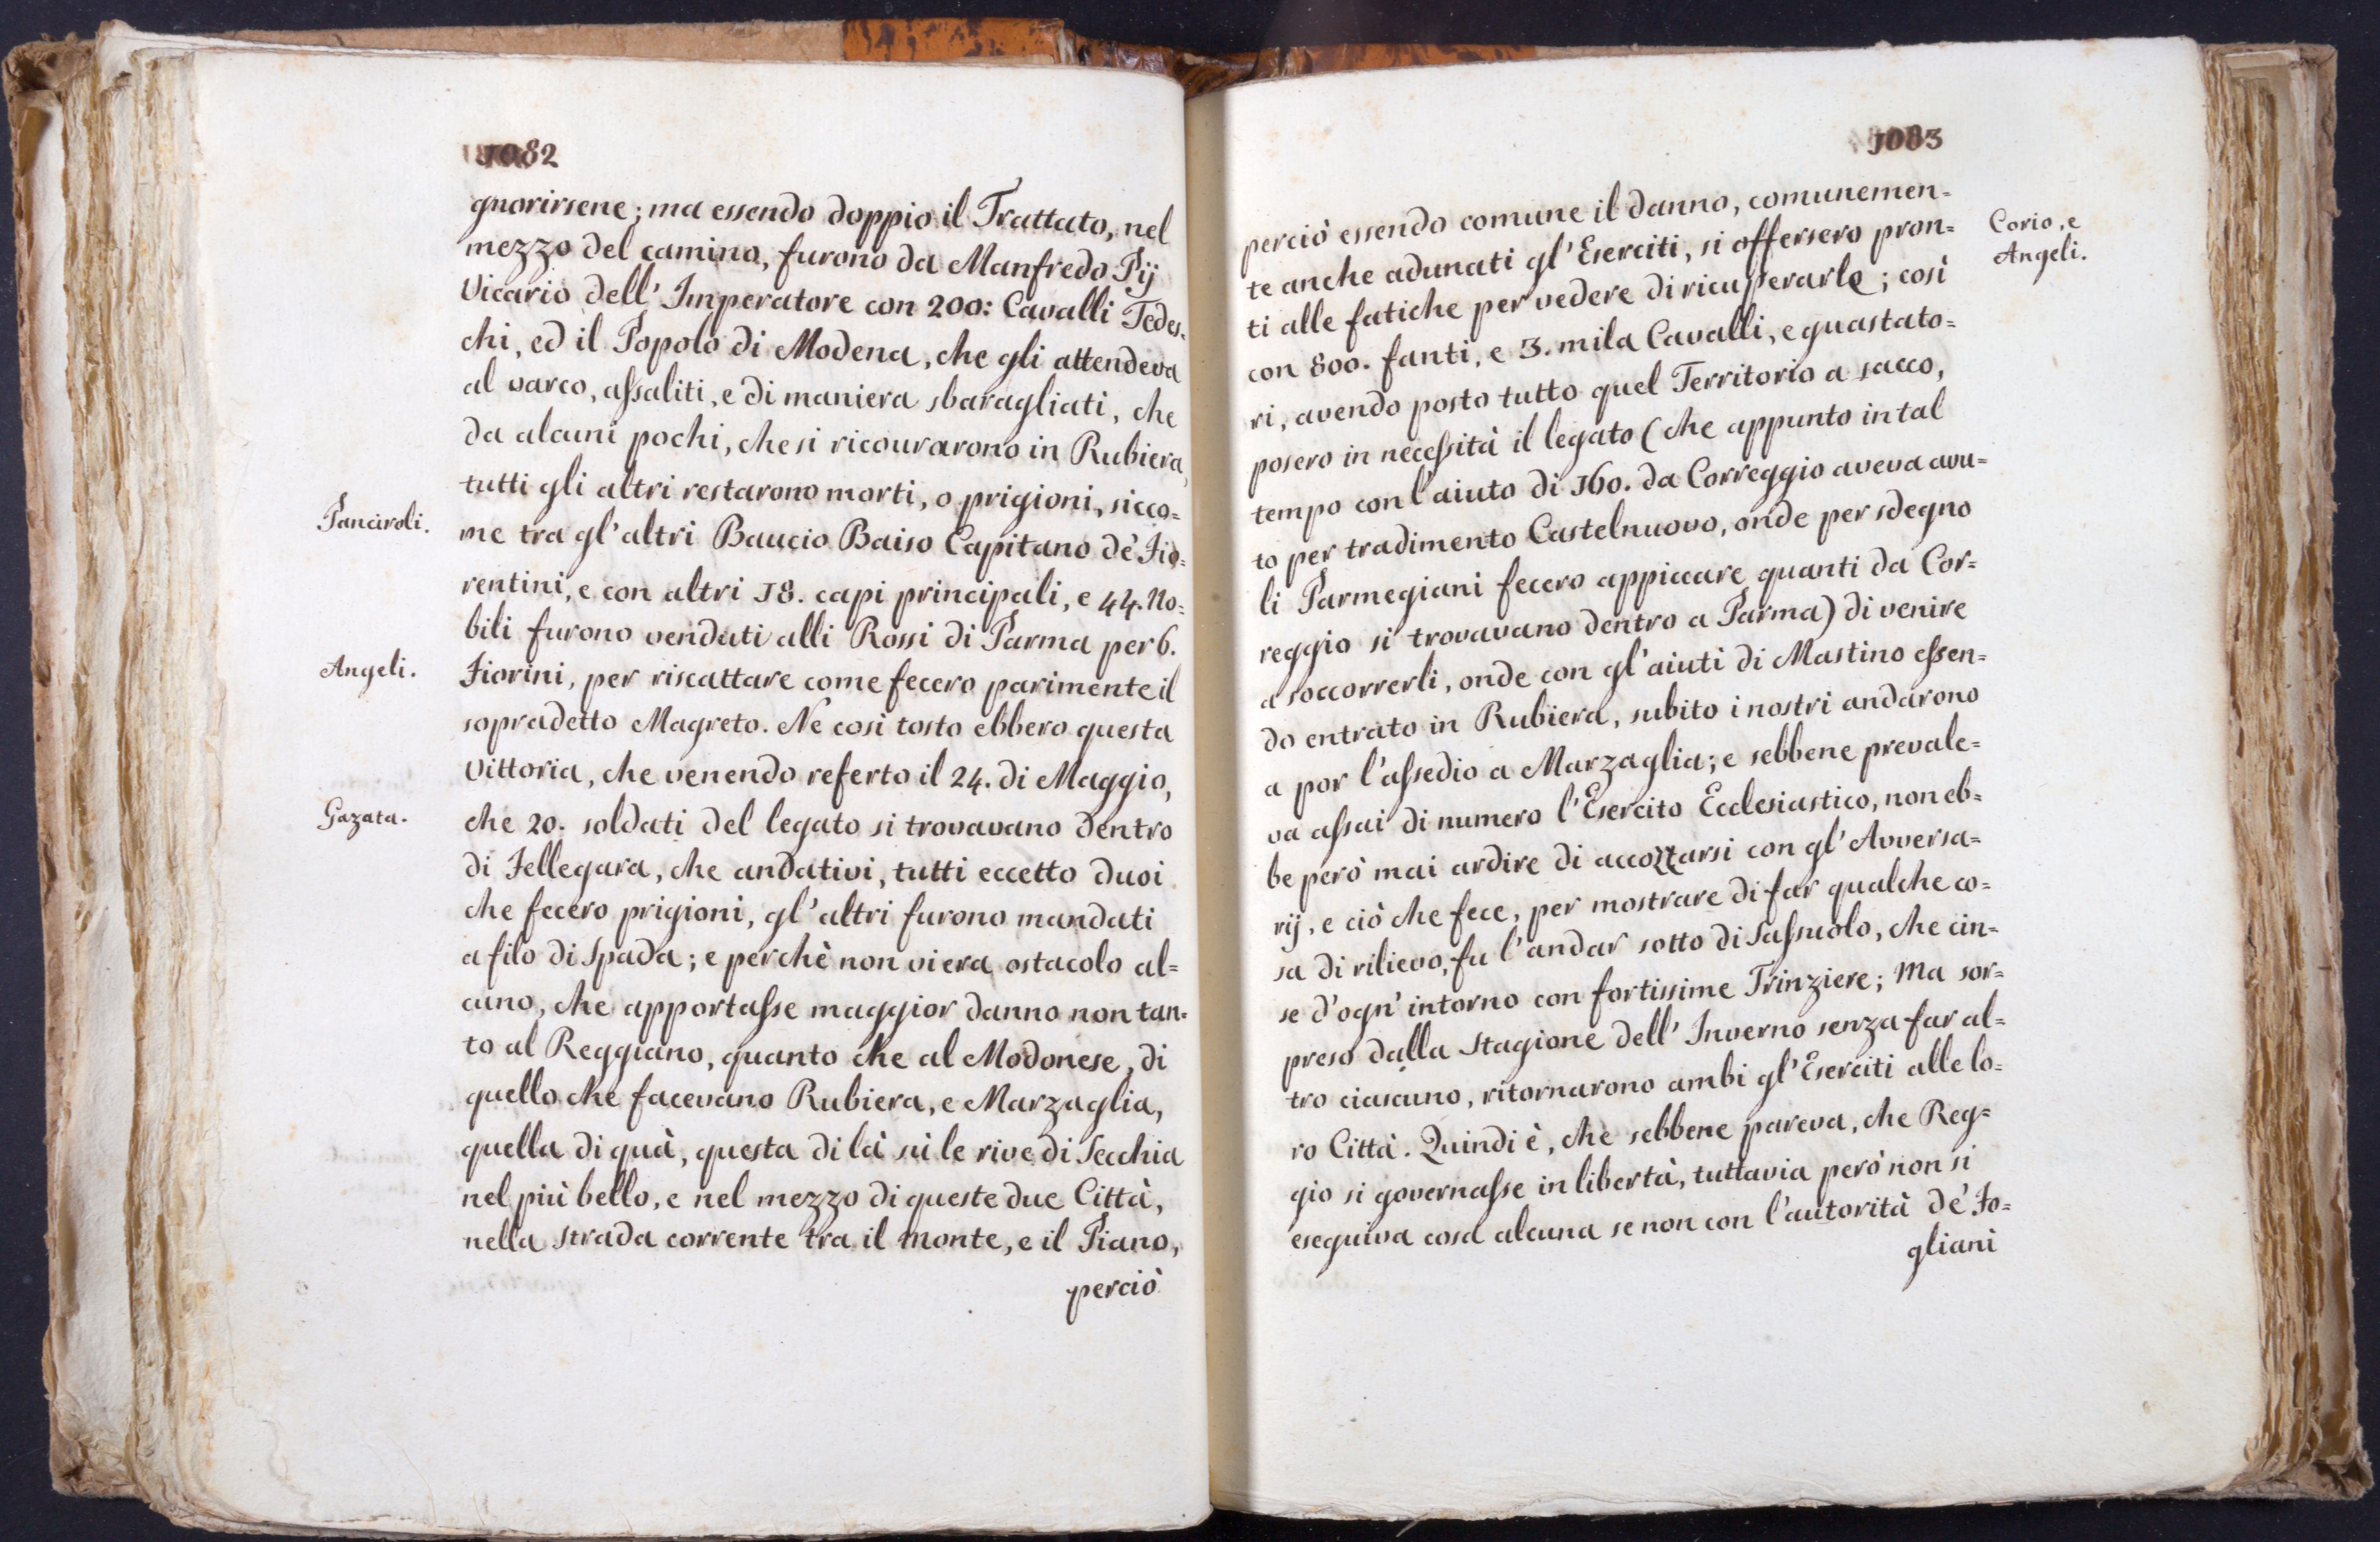 1082
gnorirsene; ma essendo doppio il Trattato, nel
mezzo del camino, furono da Manfredo Pij
Vicario dell' Imperatore con 200: Cavalli Tedes-
chi, ed il Popolo di Modena, che gli attendeva
al varco, assaliti, e di maniera sbaragliati, che
da alcuni pochi, che si ricourarono in Rubiera,
tutti gli altri restarono morti, o prigioni, sicco=
Panciroli.
me tra gl' altri Baucio Baiso Capitano de' Fio=
rentini, e con altri 18. capi principali, e 44. No=
bili furono venduti alli Rossi di Parma per 6.
Angeli.
Fiorini, per riscattare come fecero parimente il
sopradetto Magreto. Ne così tosto ebbero questa
Vittoria, che venendo referto il 24. di Maggio,
Gazata.
che 20. soldati del legato si trovavano dentro
di Fellegara, che andativi, tutti eccetto duoi
che fecero prigioni, gl' altri furono mandati
a filo di Spada; e perchè non vi era ostacolo al=
cuno, che apportasse maggior danno non tan=
to al Reggiano, quanto che al Modonese, di
quello che facevano Rubiera, e Marzaglia,
quella di quà, questa di là sù le rive di Secchia
nel più bello, e nel mezzo di queste due Città,
nella strada corrente tra il monte, e il Piano,
perciò
1083
perciò essendo comune il danno, comunemen=
Corio, e
Angeli.
te anche adunati gl' Eserciti, si offersero pron=
ti alle fatiche per vedere di ricuperarle; così
con 800. fanti, e 3. mila Cavalli, e guastato=
ri, avendo posto tutto quel Territorio a sacco,
posero in necessità il legato (che appunto in tal
tempo con l'aiuto di 160. da Correggio aveva avu=
to per tradimento Castelnuovo, onde per sdegno
li Parmegiani fecero appiccare quanti da Cor=
reggio si trovavano dentro a Parma) di venire
a soccorrerli, onde con gl' aiuti di Mastino essen=
do entrato in Rubiera, subito i nostri andarono
a por l'assedio a Marzaglia; e sebbene prevale=
va assai di numero l'Esercito Ecclesiastico, non eb=
be però mai ardire di accozzarsi con gl' Avversa=
rij, e ciò che fece, per mostrare di far qualche co=
sa di rilievo, fu l'andar sotto di Sassuolo, che cin=
se d'ogn' intorno con fortissime Trinziere; Ma sor=
preso dalla stagione dell' Inverno senza far al=
tro ciascuno, ritornarono ambi gl' Eserciti alle lo=
ro Città. Quindi è, che sebbene pareva, che Reg=
gio si governasse in libertà, tuttavia però non si
eseguiva cosa alcuna se non con l'autorità de' Fo=
gliani